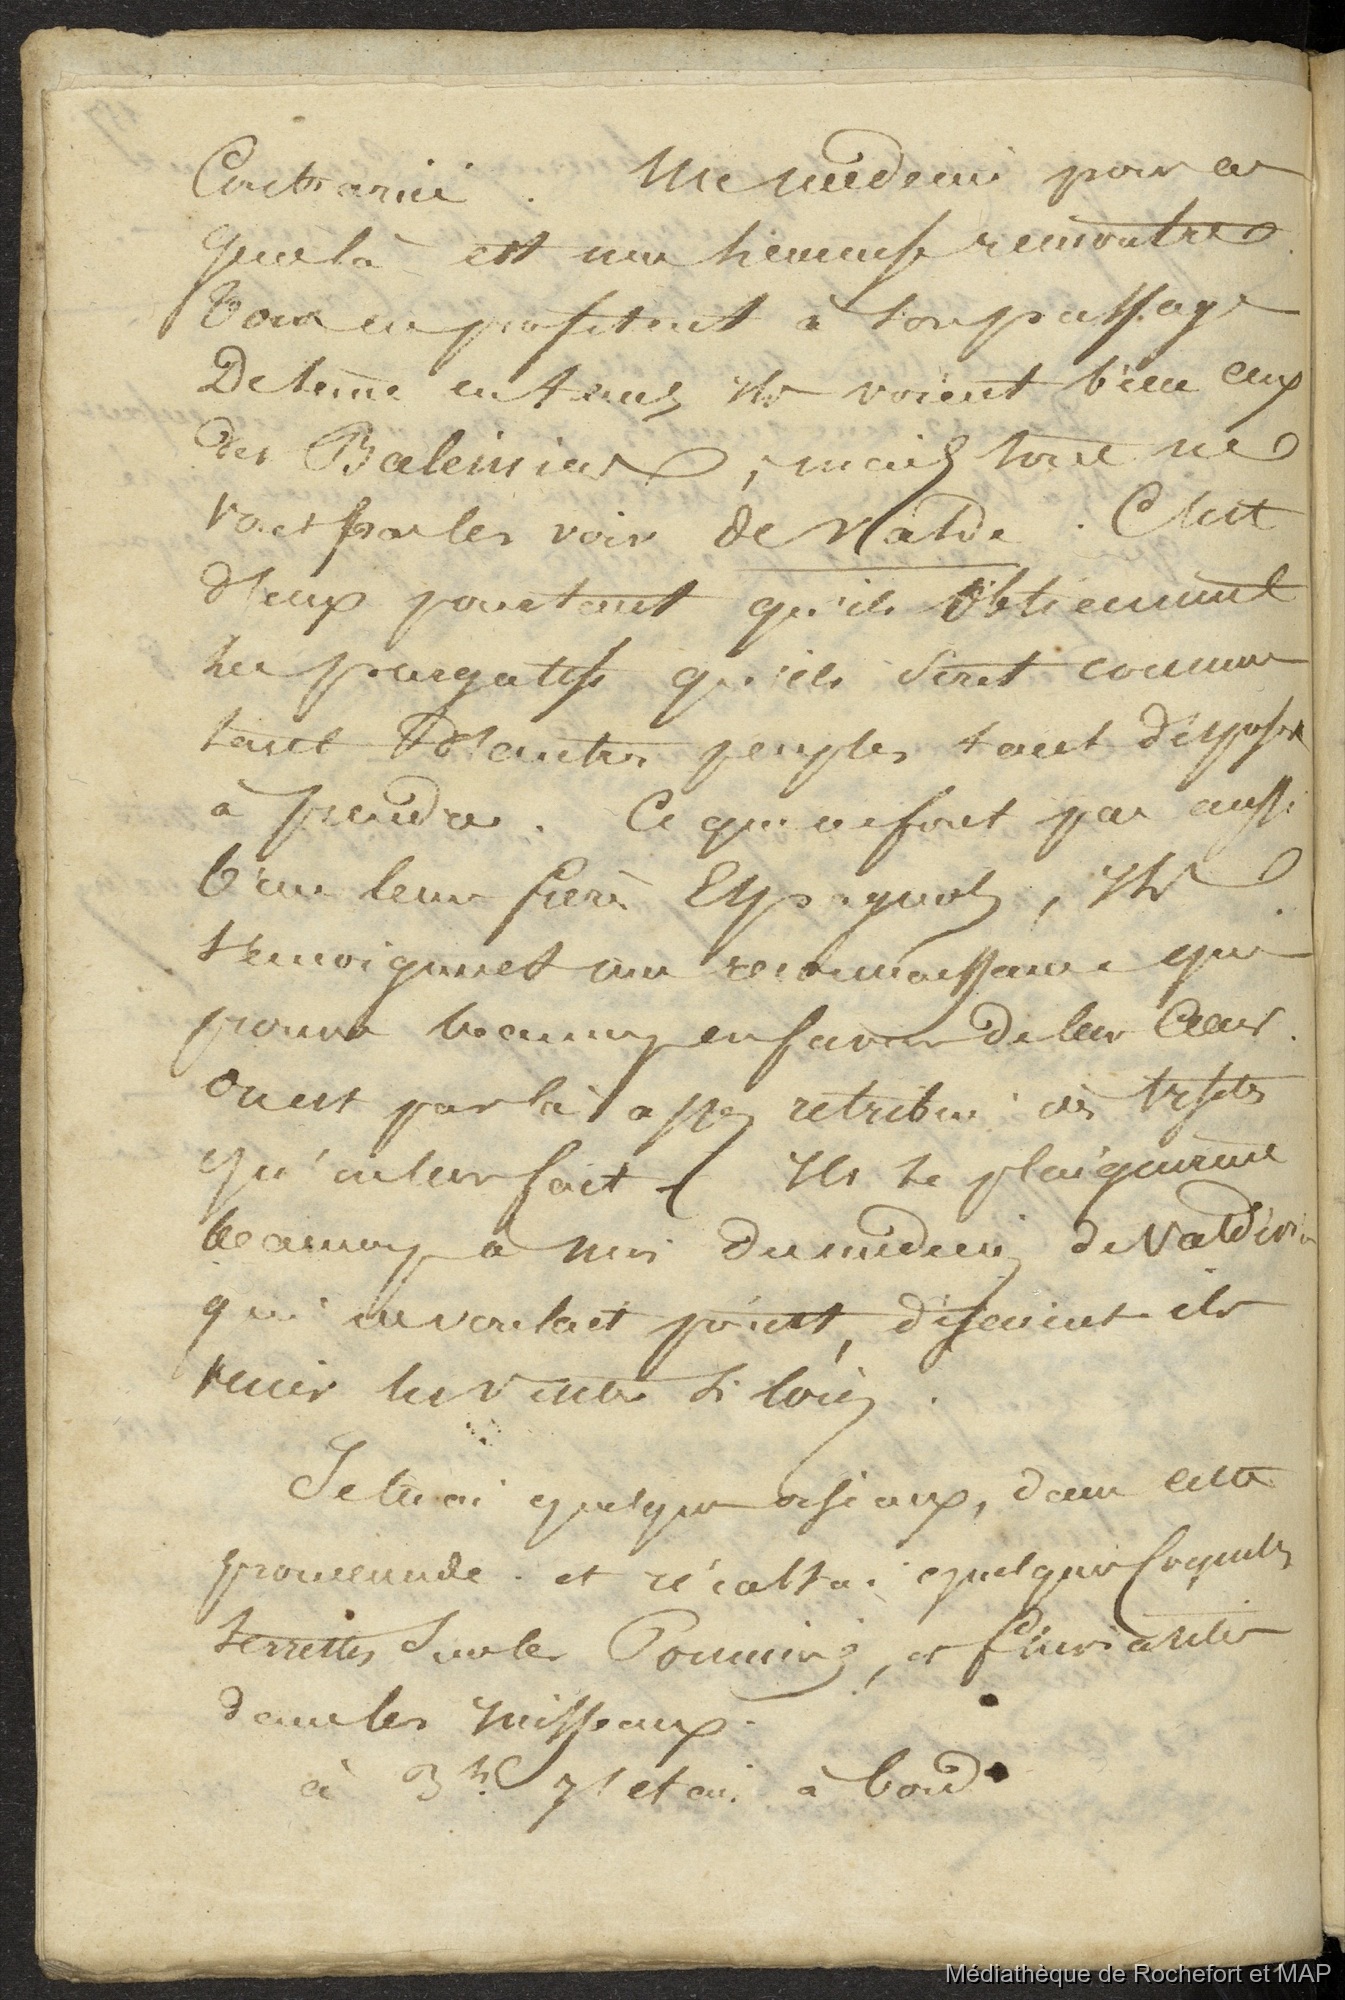 Contrarié. Un medecin pour ces
gens là est une heureuse rencontre.
Tous en profitent à son passage
De tems en tems ils voient bien ceux
des Baleiniers, mais tous ne
vont pas les voir de
d'eux pourtant qu'ils obtiennent
les purgatifs qu'ils sont comme
tant d'autres peuples tant disposés
à prendre. Ce que ne font pas aussi
bien leurs fiers Espagnols, ils
temoignent une reconnaissance qui
prouve beaucoup en faveur de leur Cœur.
On est par là assez retribué des
qu'on leur fait. Ils se plaignirent
beaucoup à moi du medecin de Valdivia
qui ne voulait point, disaient ils
venir les visiter si loin.
Je tuai quelques oiseaux, dans cette
promenade. et récoltai quelques Coquilles
terrestres sur les Pommiers, et fluviatiles
dans les ruisseaux.
à 3h. j'etai à bord.
Médiathèque de Rochefort et MAP